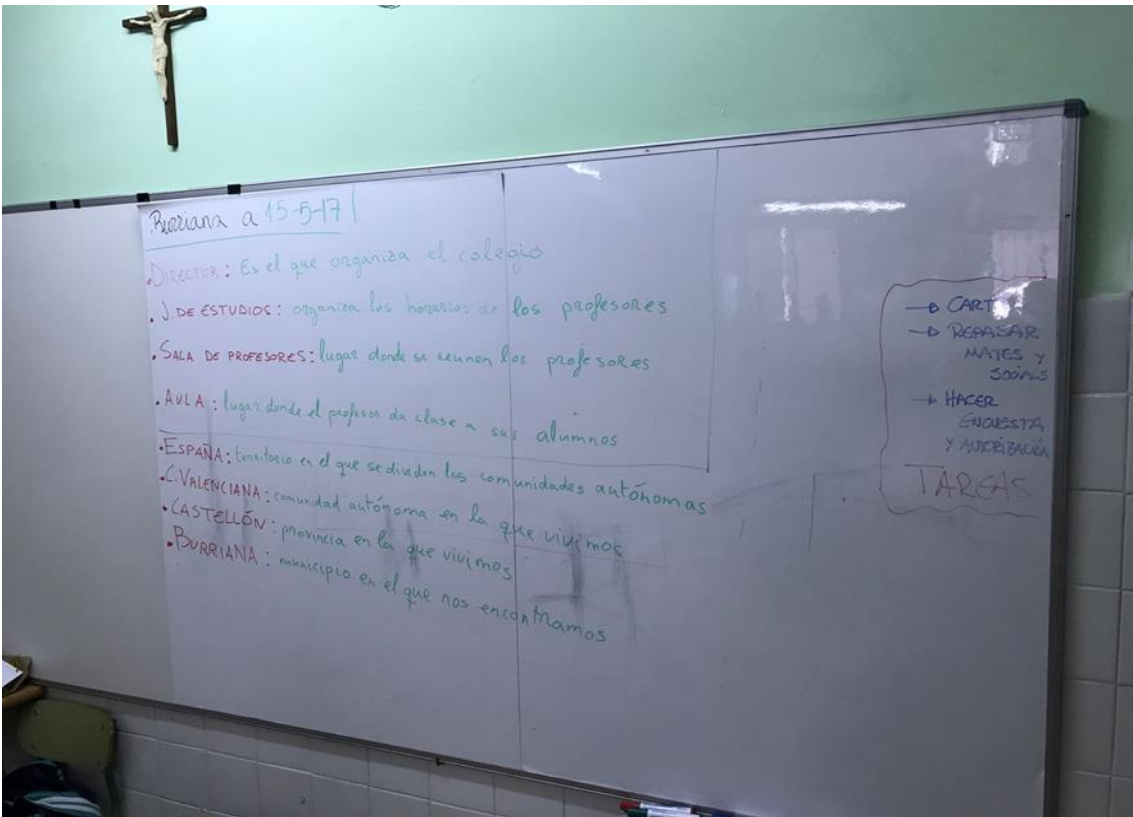 Burriana a 15-5-17
.DIRECTOR: Es el que organiza el colegio
. J. DE ESTUDIOS: organiza los horarios de los profesores
. SALA DE PROFESORES: lugar donde se reunen los profesores
. AULA: lugar donde el profesor da clase a sus alumnos
.ESPAÑA: territorio en el que se dividen las comunidades autónomas
.C. VALENCIANA: comunidad autónoma en la que vivimos
.CASTELLÓN: provincia en la que vivimos
.BURRIANA: municipio en el que nos encontramos
→ REPASAR
MATES Y
SOCIALS
→ HACER
ENCUESTA
Y AUTORIZACIÓN
TAREAS